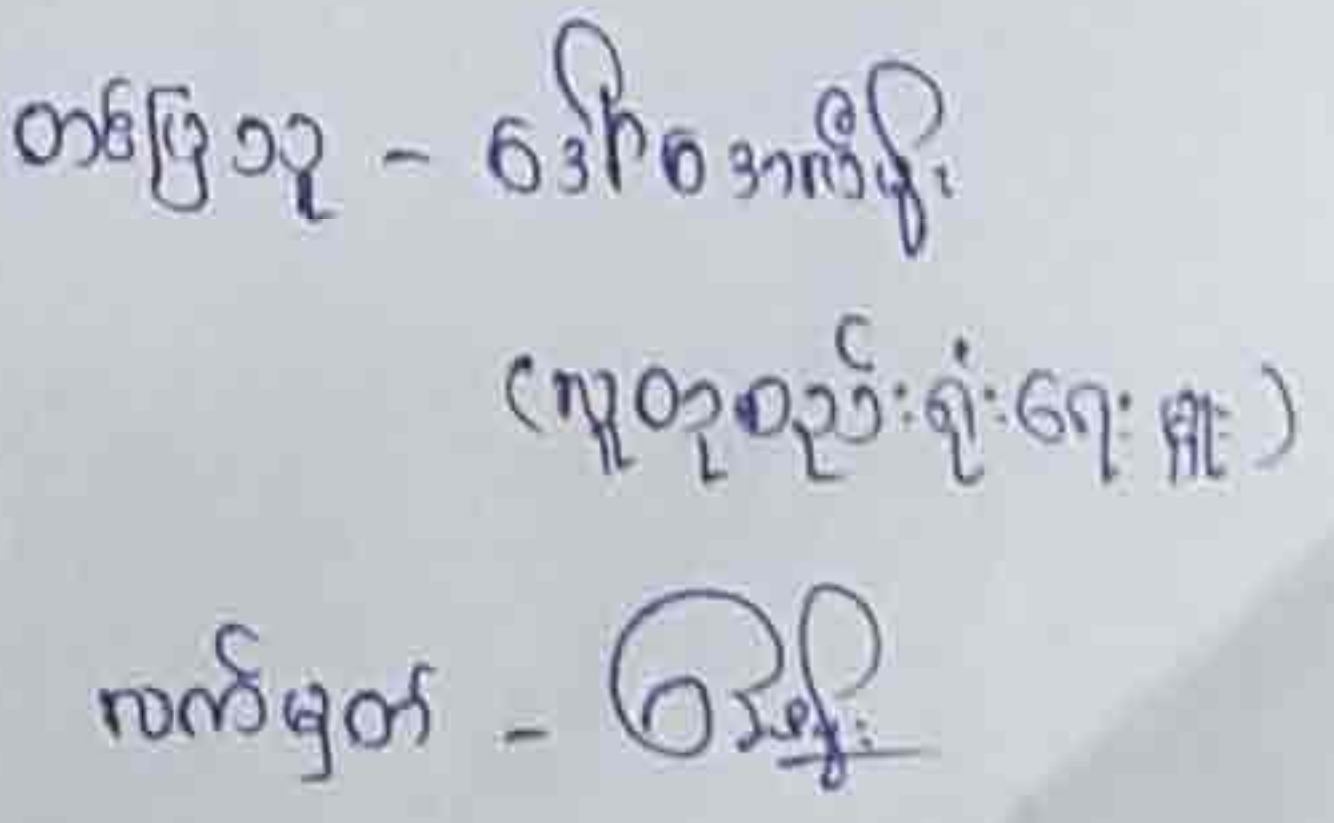 တင်ပြသူ - ဒေါ်စောကြည်မိုး
(လူထုစည်းရုံးရေးမှူး)
လက်မှတ် -